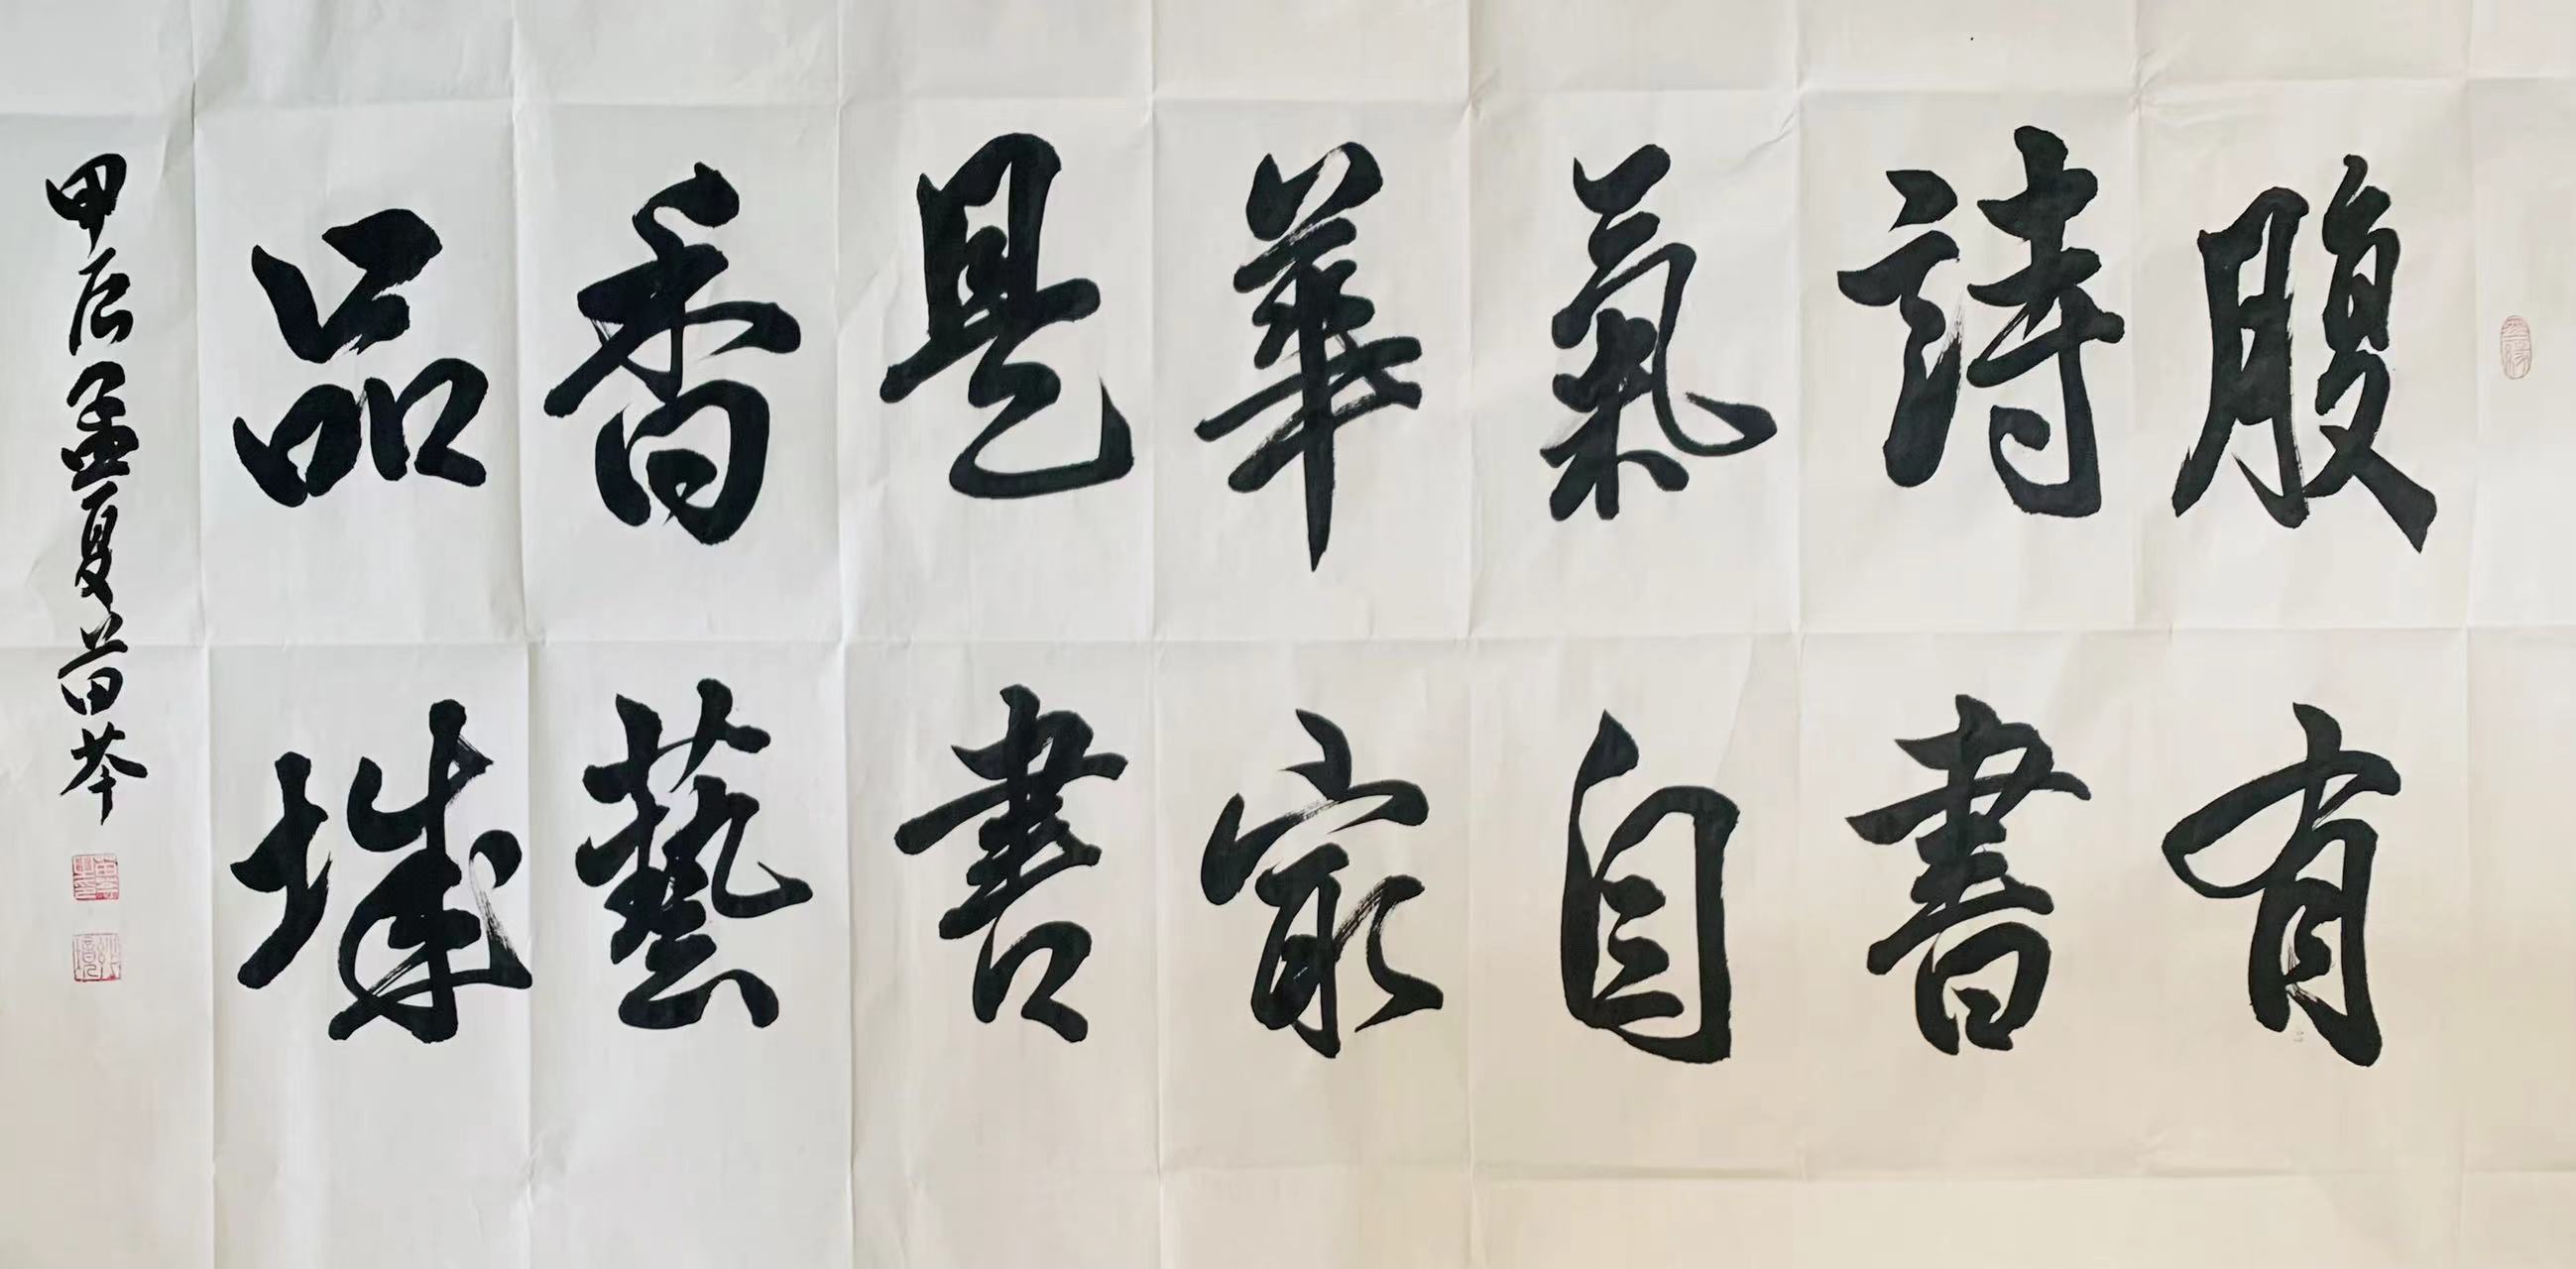 腹有
詩書
氣自
華家
是書
香藝
品城
甲辰孟夏苗